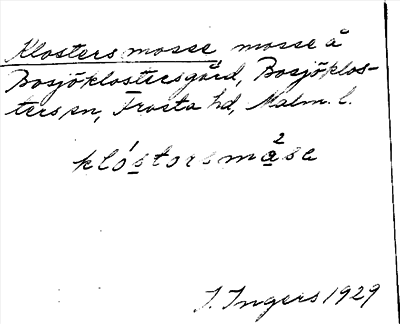 Klosters mosse mosse å
Bosjöklostersgård, Bosjöklos-
ters sn, Frosta hd, Malm. l.
klóstorsmåse
2
I. Ingers 1929